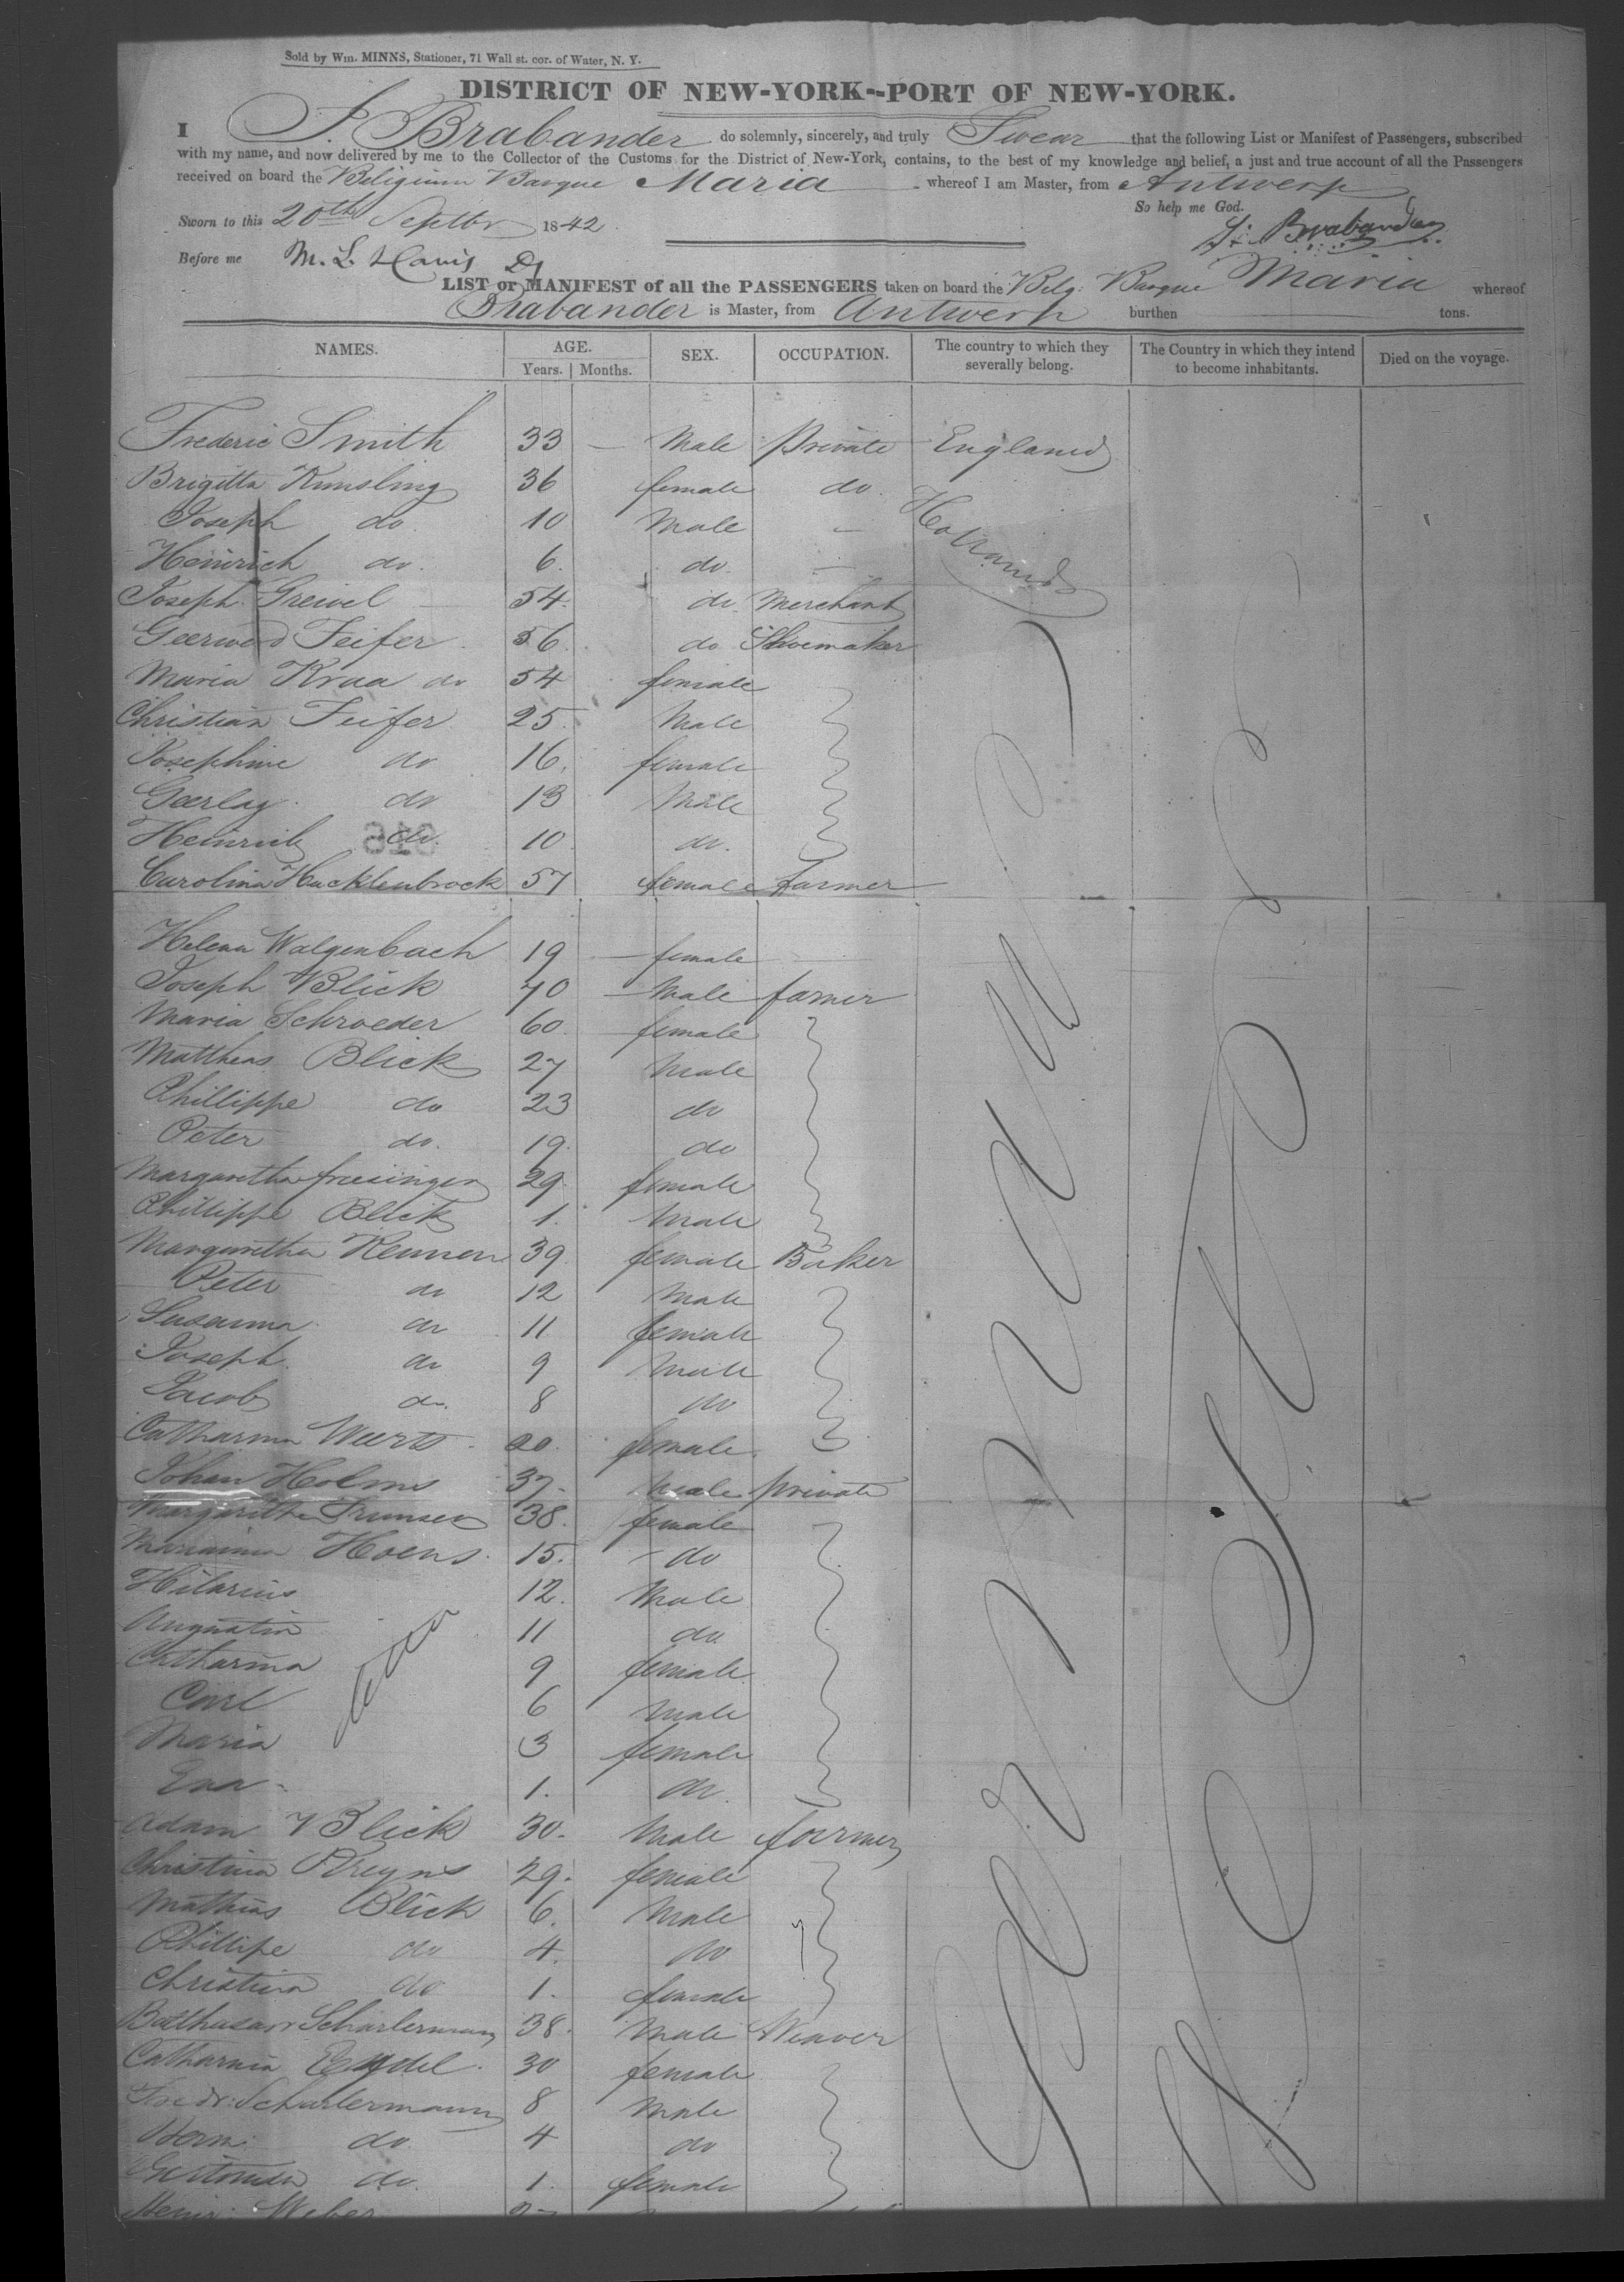 Sold by Wm. MINNS, Stationer, 71 Wall st. cor. of Water, N. Y.
DISTRICT OF NEW-YORK--PORT OF NEW-YORK.
I Brabander do solemnly, sincerely, and truly Swear that the following List or Manifest of Passengers, subscribed
with my name, and now delivered by me to the Collector of the Customs for the District of New-York, contains, to the best of my knowledge and belief, a just and true account of all the Passengers
received on board the Barque Maria whereof I am Master, from Antwerp
So help me God.
Sworn to this 20th Septbr 1842.
Brabander
Before me M. L. Davis
LIST or MANIFEST of all the PASSENGERS taken on board the Belg: Barque Maria whereof
Brabander is Master, from Antwerp burthen tons.
NAMES. AGE. SEX. OCCUPATION. The country to which they severally belong. The Country in which they intend to become inhabitants. Died on the voyage.
Years. Months.
Frederic Smith 33 Male private England
Brigitta Kunsling 36 female do. Holland
Joseph do 10 Male
Heinrich do. 6. do.
Joseph Greivel 54. do Merchant
Feifer 56. do Shoemaker
Maria Kraa do 54 female
Christian Feifer 25. Male
Josephine do 16. female
do 13 Male
Heinrich do. 10. do.
Carolina Hacklenbrock 57 female farmer
Helena Walgenbach 19 female
Joseph Blick 70 Male farmer
Maria Schroeder 60. female
Matthias Blick 27 Male
Phillippe do 23 do
Peter do. 19. do
Margaretha 29. female
Phillippe Blick 1. Male
Margaretha 39. female Baker
Peter do 12 Male
Susanna do 11 female
Joseph do 9 Male
Jacob do. 8 do
Catharina 20. female
Johan 37. Male private
Margaritha 38. female
15. do
Hilarius 12. Male
Augustin 11 do.
Catharina 9 female
Carl 6 Male
Maria 3 female
Eva 1. do.
Adam Blick 30. Male farmer
Christina 29. female
Mathias Blick 6. Male
Phillipe do 4. do
Christina do 1. female
Balthasar Scharlermann 38. Male Weaver
Catharina 30 female
Fredr: Scharlermann 8 Male
Herm: do 4 do
do. 1. female
Henir: Weber
Germany
U. States